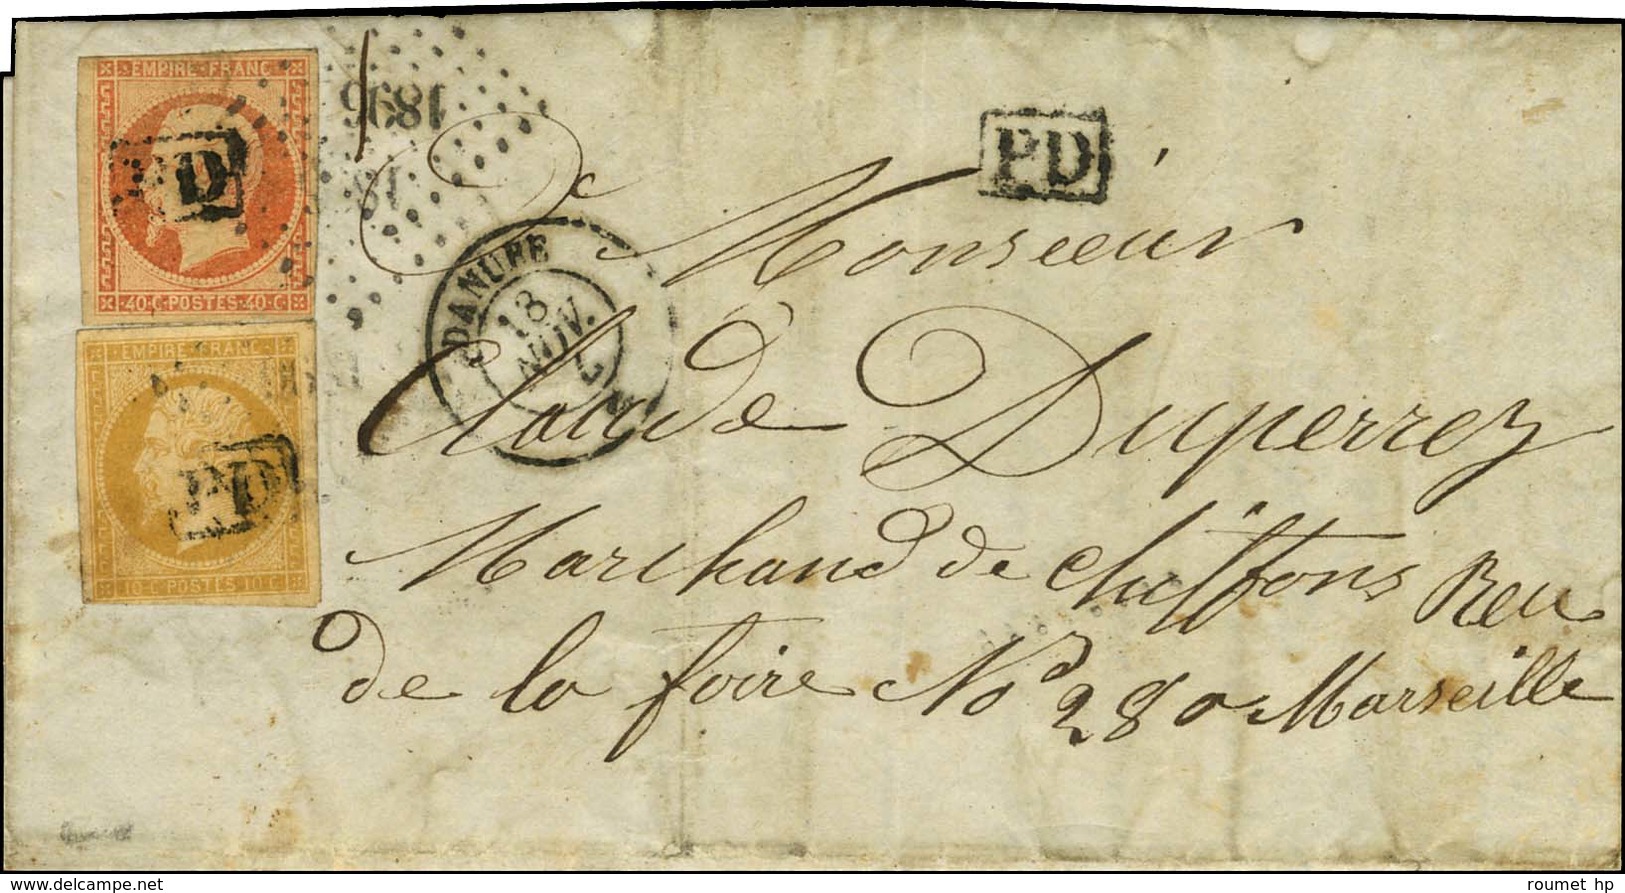 EMPIRE FRANC
PD
40·C·POSTES·40·C
EMPIRE FRANC
PD
10·C·POSTES·10·C
1896
18
PD
DANUBE
18
NOV.
Monseiur
Claude Duperrey
Marchand de chiffons Reu
de la foire No 280 Marseille
roumet hp